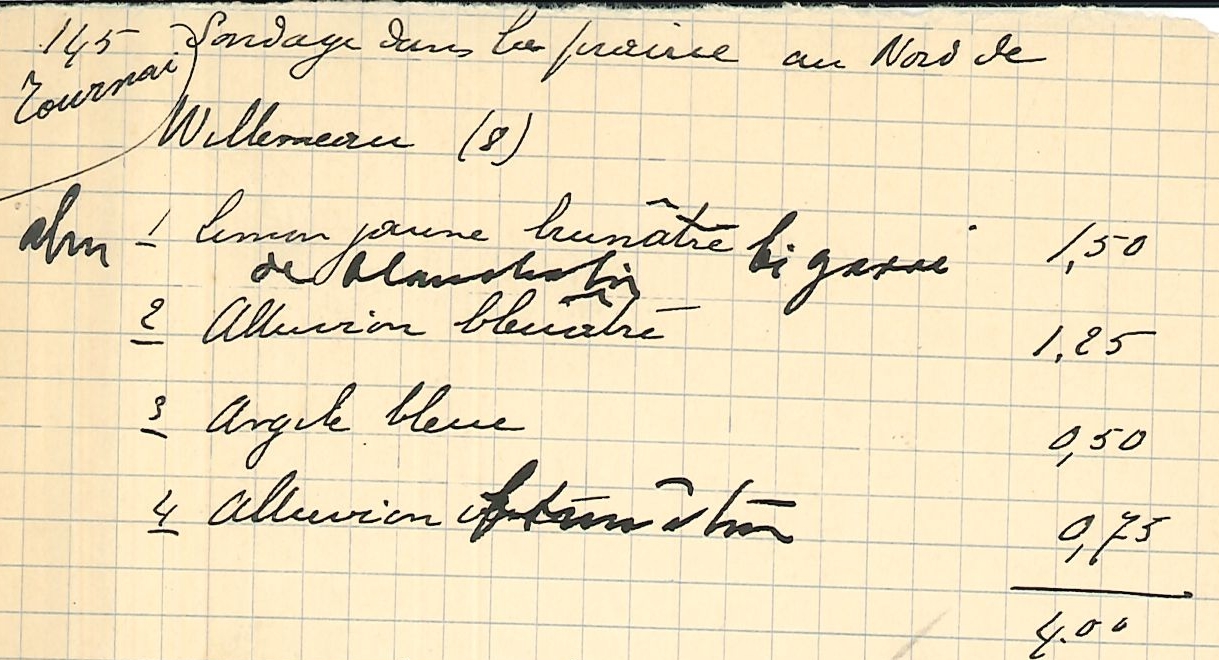 145 Sondage dans la prairie au Nord de
Tournai
Willemeau (8)
alm 1 limon jaune brunâtre bigarré 1,50
de blanchâtre
2 Alluvion bleuâtre 1,25
3 Argile bleue 0,50
4 Alluvion 0,75
4.00